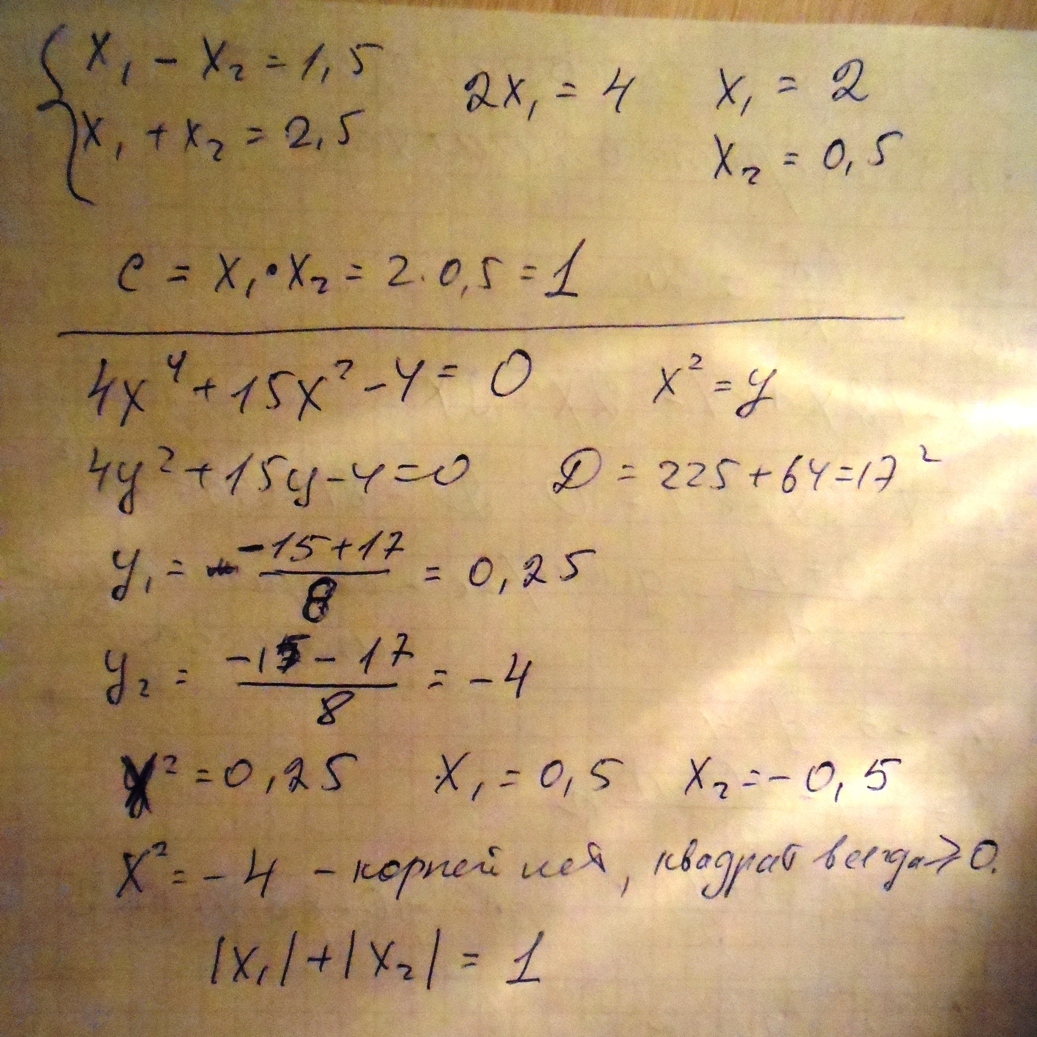 x₁ - x₂ = 1,5   2x₁ = 4   x₁ = 2
x₁ + x₂ = 2,5   x₂ = 0,5
c = x₁·x₂ = 2·0,5 = 1
4x⁴ + 15x² - 4 = 0   x² = y
4y² + 15y - 4 = 0   D = 225 + 64 = 17²
y₁ = (-15+17)/8 = 0,25
y₂ = (-15-17)/8 = -4
x² = 0,25   x₁ = 0,5   x₂ = -0,5
x² = -4 - корней нет, квадрат всегда ≥ 0.
|x₁| + |x₂| = 1